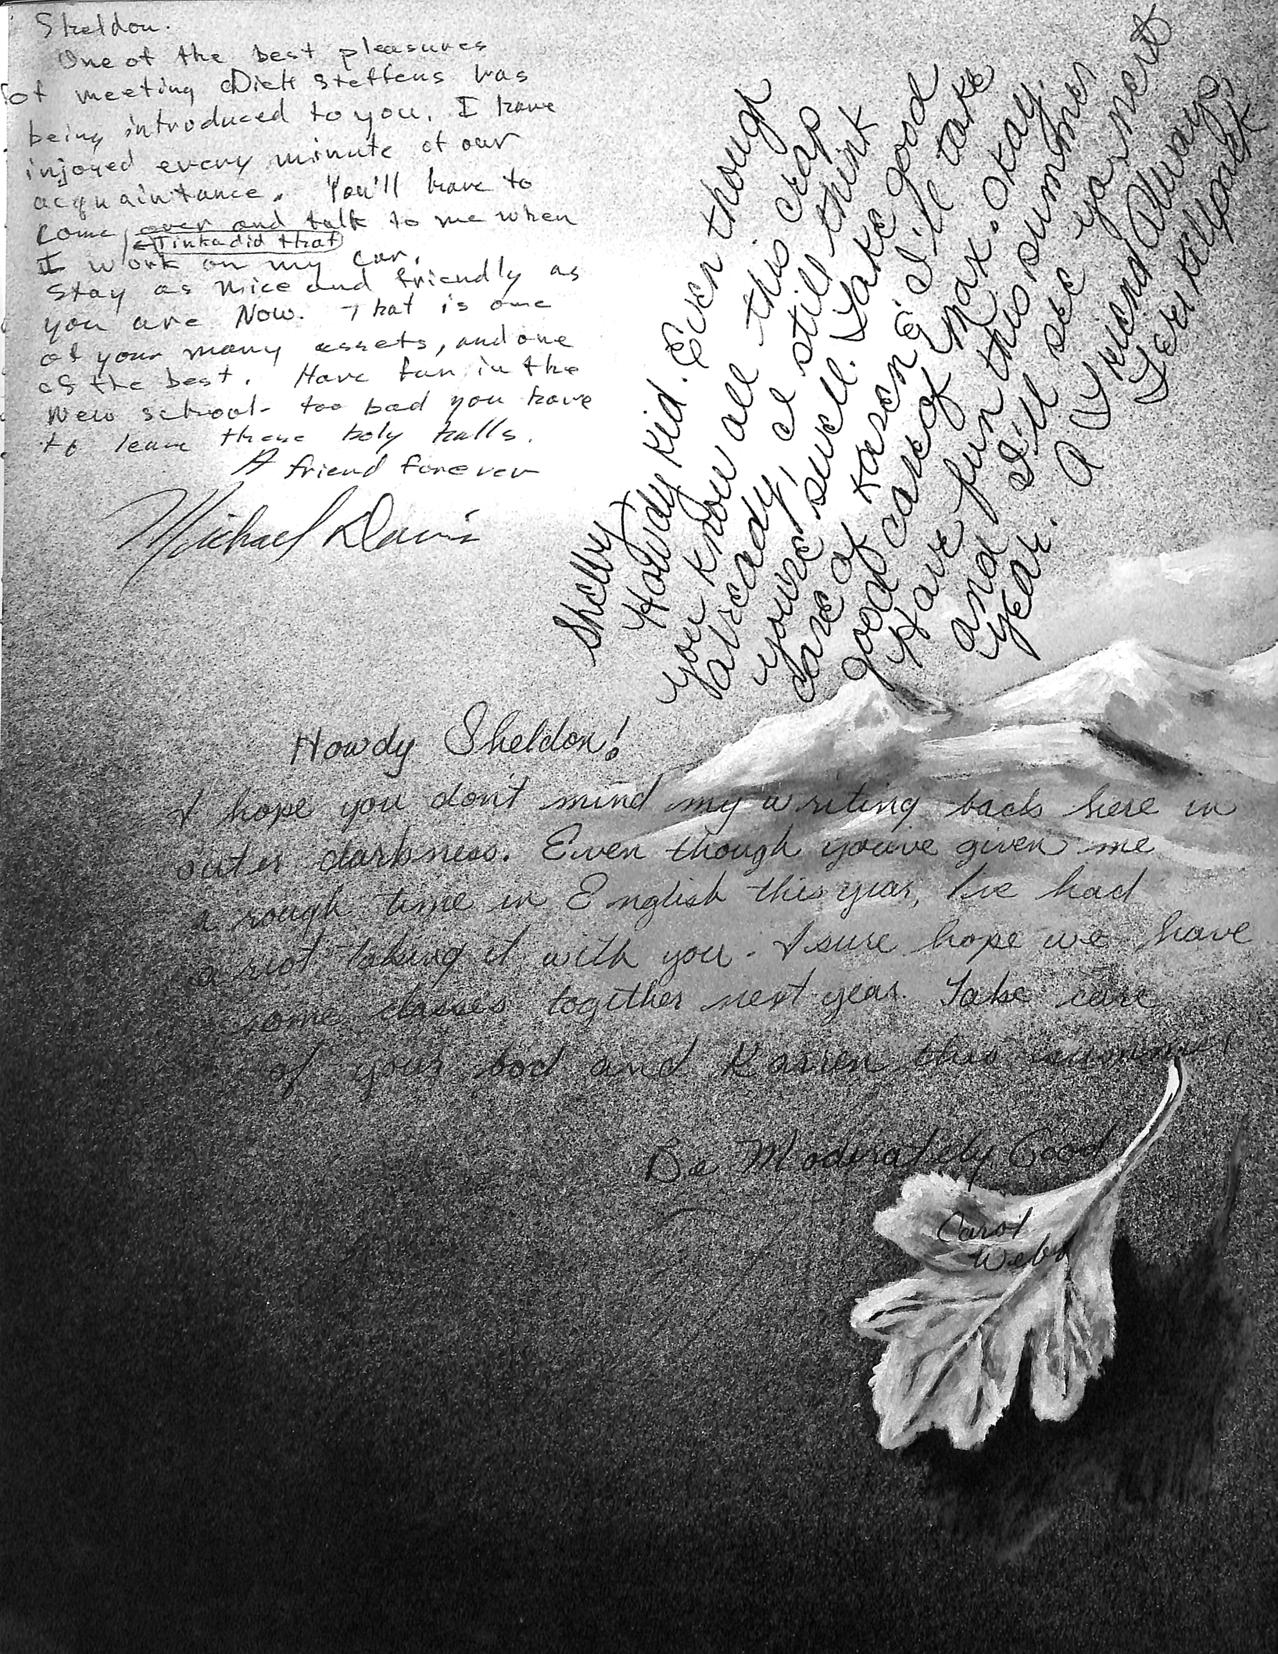 Sheldon.
One of the best pleasures
of meeting Dick Steffens was
being introduced to you. I have
injoyed every minute of our
acquaintance. You'll have to
come over and talk to me when
Tinka did that
I work on my car.
Stay as nice and friendly as
you are Now. That is one
of your many assets, and one
of the best. Have fun in the
New school - too bad you have
to leave these holy halls.
A friend forever
Michael Davis
Shelly
Howdy Kid. Even though
you know all this crap
already, I still think
youre swell. Take good
care of Karen & I'll take
good care of Max. Okay.
Have fun this summer
and I'll see ya next
year.
A Friend Always,
Teri Kilpack
Howdy Sheldon!
I hope you don't mind my writing back here in
outer darkness. Even though youve given me
a rough time in English this year, Ive had
a riot taking it with you. I sure hope we have
some classes together next year. Take care
of your bod and Karren this summer!
Be Moderately Good
Carol
Webb